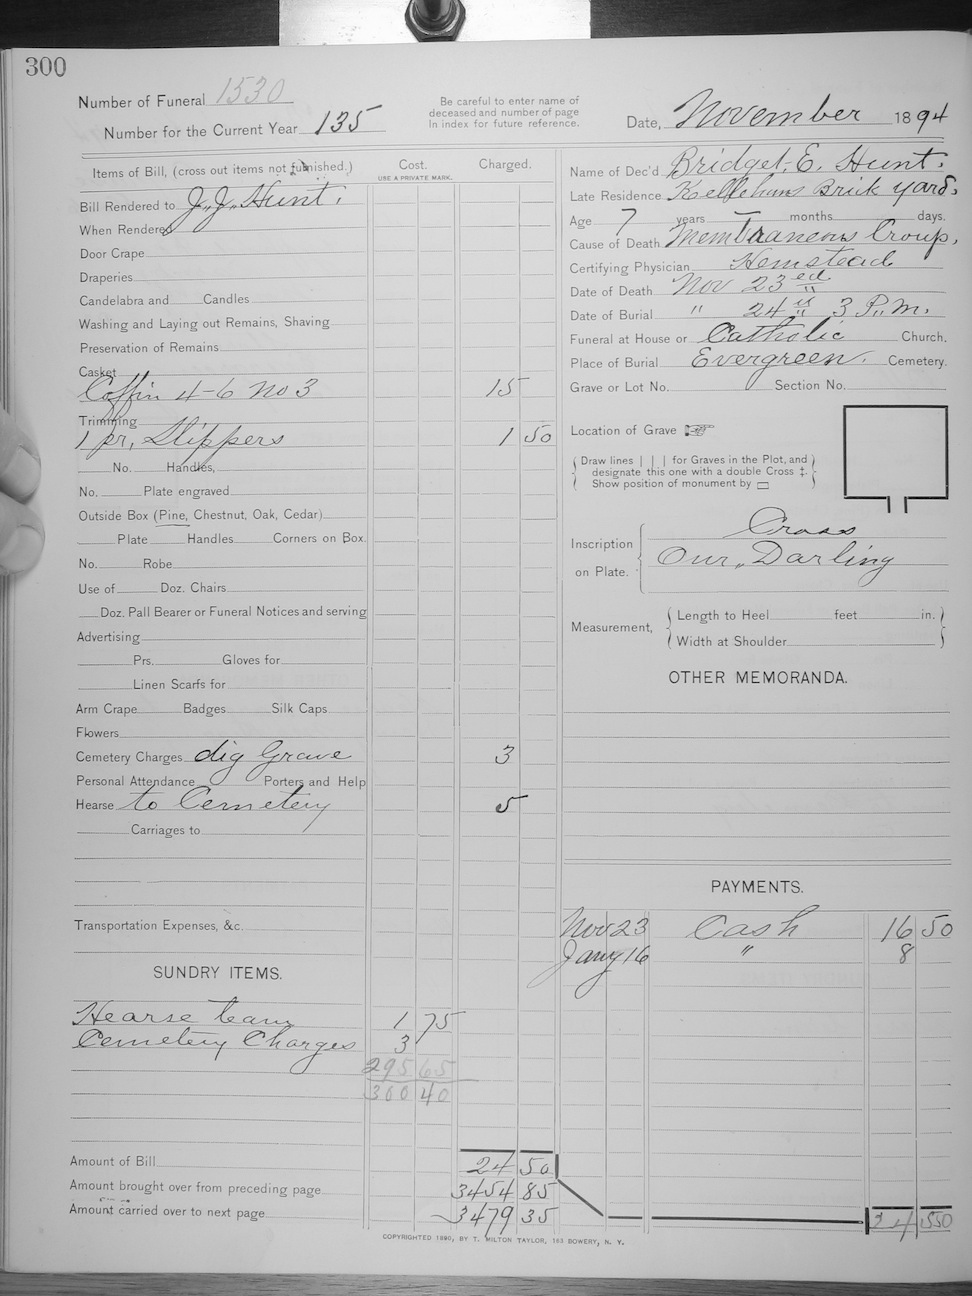 300
Number of Funeral 1530
Number for the Current Year 135
Be careful to enter name of
deceased and number of page
In index for future reference.
Date, November 1894
Items of Bill, (cross out items not furnished.)
Cost.
USE A PRIVATE MARK.
Charged.
Bill Rendered to J. J. Hunt.
When Rendered
Door Crape
Draperies
Candelabra and Candles
Washing and Laying out Remains, Shaving
Preservation of Remains
Casket
Coffin 4-6 No 3 15
Trimming
1 pr, Slippers 1 50
No. Handles,
No. Plate engraved
Outside Box (Pine, Chestnut, Oak, Cedar)
Plate Handles Corners on Box.
No. Robe
Use of Doz. Chairs
Doz. Pall Bearer or Funeral Notices and serving
Advertising
Prs. Gloves for
Linen Scarfs for
Arm Crape Badges Silk Caps
Flowers
Cemetery Charges dig Grave 3
Personal Attendance Porters and Help
Hearse to Cemetery 5
Carriages to
Transportation Expenses, &c.
SUNDRY ITEMS.
Hearse team 1 75
Cemetery Charges 3
295 65
300 40
Amount of Bill 24 50
Amount brought over from preceding page 3454 85
Amount carried over to next page 3479 35
Name of Dec'd Bridget. E. Hunt.
Late Residence Kellehans Brick yard.
Age 7 years — months days.
Cause of Death Membraneous Croup,
Certifying Physician Hemstead
Date of Death Nov 23 ed
Date of Burial " 24 3 P.M.
Funeral at House or Catholic Church.
Place of Burial Evergreen. Cemetery.
Grave or Lot No. Section No.
Location of Grave
Draw lines | | | for Graves in the Plot, and
designate this one with a double Cross ‡.
Show position of monument by
Inscription
on Plate.
Cross
Our Darling
Measurement,
Length to Heel feet in.
Width at Shoulder
OTHER MEMORANDA.
PAYMENTS.
Nov 23 Cash 16 50
Jany 16 " 8
24 550
COPYRIGHTED 1890, BY T. MILTON TAYLOR, 163 BOWERY, N. Y.